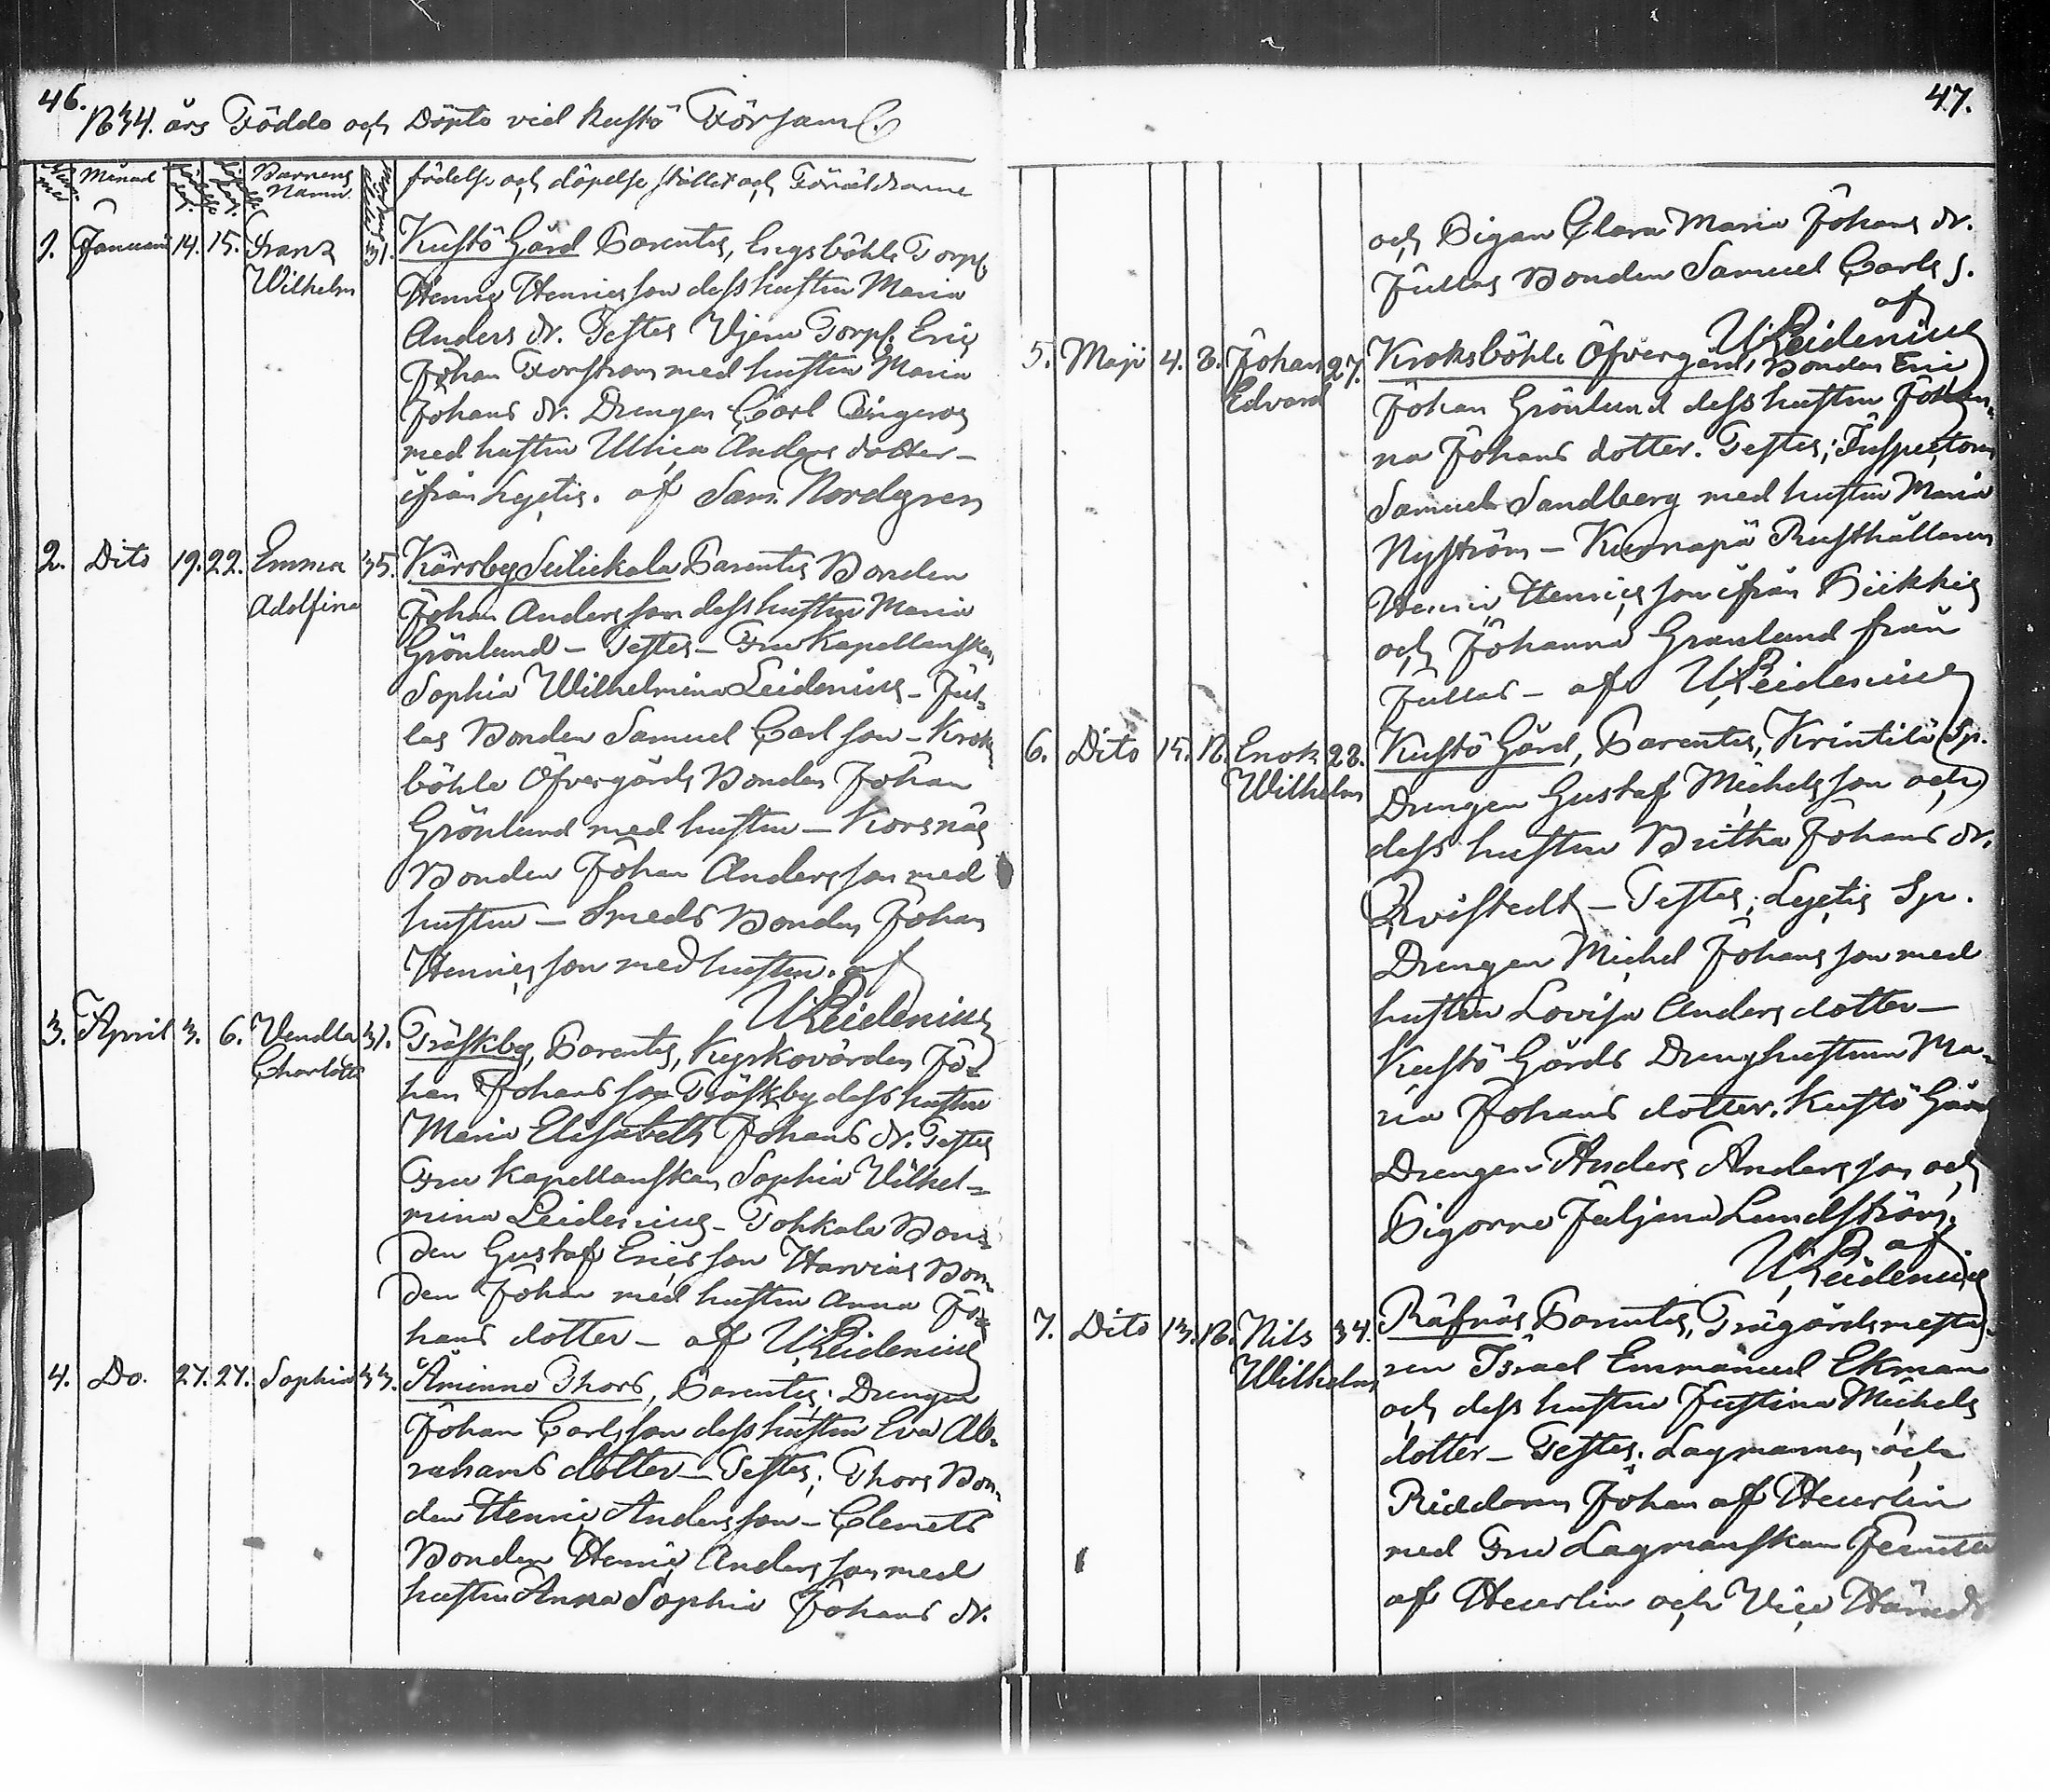 46.
1834. års Födde och Döpte vid Kustö Församl.
Månad
Barnens Namn
födelse och döpelse stället och Föräldrarne
1. Januari 14. 15. Frans Wilhelm 31. Kustö Gård Parentes, Engsböhle Torp.
Henric Henricsson dess hustru Maria
Anders dr. Testes Torp. Eric
Johan Forsström med hustru Maria
Johans dr. Drengen Carl
med hustru Ulrica Anders dotter –
ifrån Lejetis. af Sam. Nordgren
2. Dito 19. 22. Emma Adolfina 35. Kärrby Seilickala Parentes Bonden
Johan Andersson dess hustru Maria
Grönlund – Testes – Fru Kapellanskan
Sophia Wilhelmina Leidenius – Jul=
las Bonden Samuel Carlsson – Kroks
böhle Öfvergårds Bonden Johan
Grönlund med hustru – Korsnäs
Bonden Johan Andersson med
hustru – Smeds Bonden Johan
Henricsson med hustru. af
U. Leidenius
3. April 3. 6. Vendla Charlotta 31. Träskby, Parentes, Kyrkovärden Jo=
han Johansson Träskby dess hustru
Maria Elisabeth Johans dr. Testes
Fru Kapellanskan Sophia Vilhel=
mina Leidenius – Tohkala Bon=
den Gustaf Ericsson Harvius Bon=
den Johan med hustru Anna Jo=
hans dotter – af U. Leidenius
4. Do. 27. 27. Sophia 33. Ämienne Thors, Parentes; Drengen
Johan Carlsson dess hustru Eva Ab=
rahams dotter – Testes; Thors Bon=
den Henric Andersson – Clemets
Bonden Henric Andersson med
hustru Anna Sophia Johans dr.
47.
och Pigan Clara Maria Johans dr.
Jullas Bonden Samuel Carls s.
af
U. Leidenius
5. Maji 4. 8. Johan Edvard 27. Kroksböhle Öfvergård, Bonden Eric
Johan Grönlund dess hustru Johan=
na Johans dotter. Testes; Inspectorn
Samuel Sandberg med hustru Maria
Nyström – Kurnapä Rusthållaren
Henric Henricsson ifrån Piikkis
och Johanna Granlund från
Jullas – af U. Leidenius
6. Dito 15. 18. Enok Wilhelm 28. Kustö Gård, Parentes, Krintilä Sp.
Drengen Gustaf Michelsson och
dess hustru Britha Johans dr.
Qvistedt – Testes; Lejetis Sp.
Drengen Michel Johansson med
hustru Lovisa Anders dotter –
Kustö Gårds Drenghustrun Ma=
ria Johans dotter. Kustö Gårds
Drengen Anders Andersson och
Pigorne Juljana Lundström.
af
U. Leidenius
7. Dito 13. 18. Nils Wilhelm 34. Räfnäs Parentes, Trägårdsmesta=
ren Israel Emmanuel Ekman
och dess hustru Justina Michels
dotter – Testes; Lagmannen och
Riddaren Johan af Heurlin
med Fru Lagmanskan
af Heurlin och Vice Härads